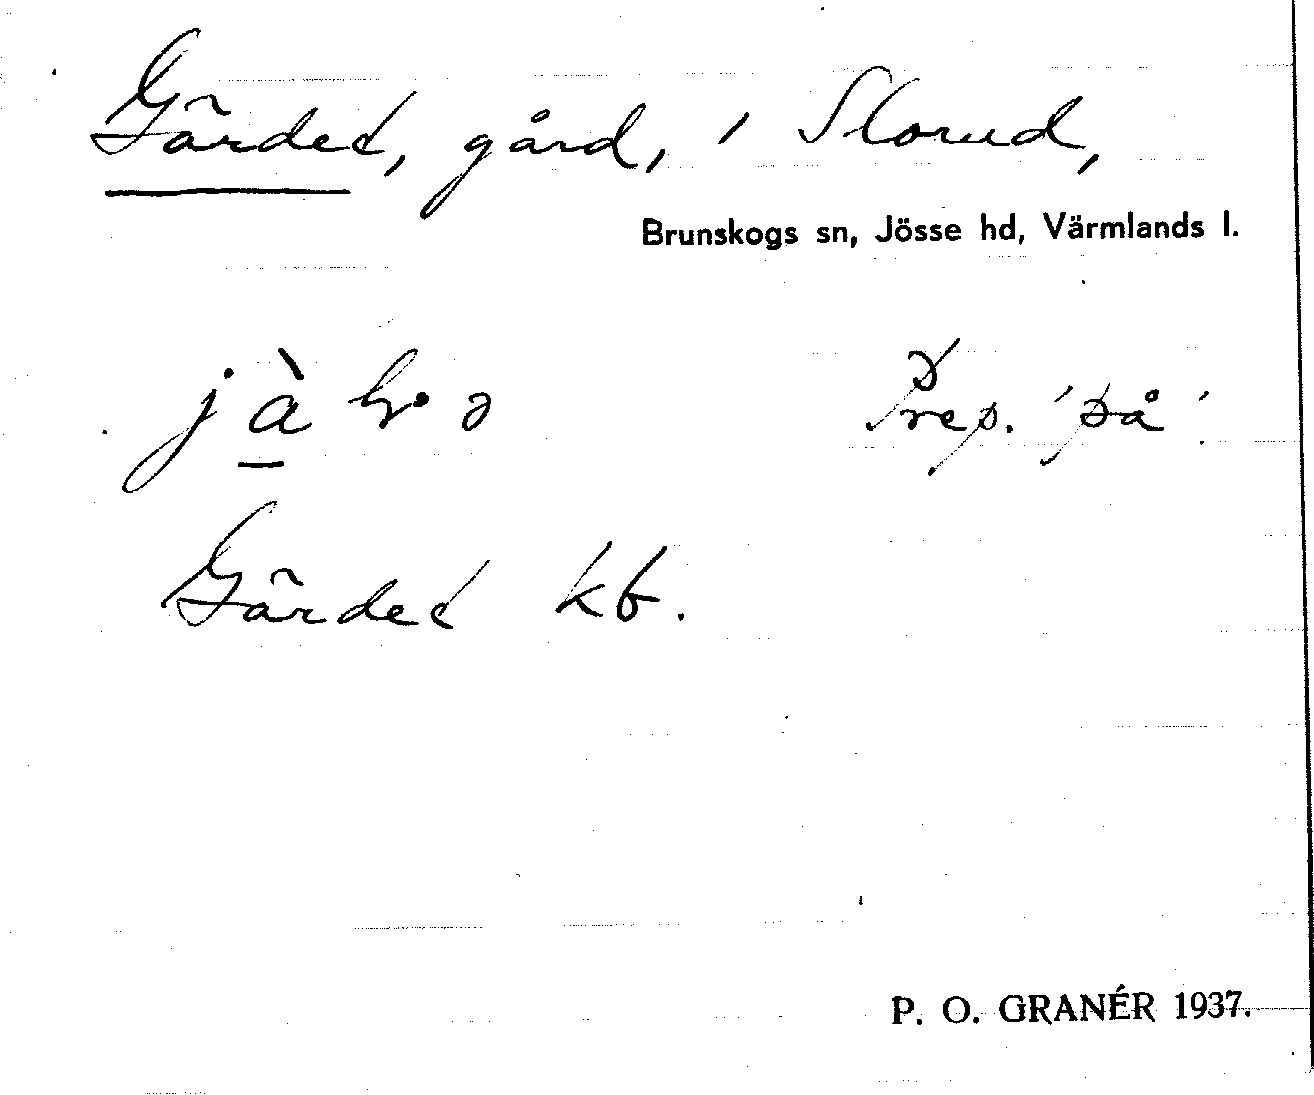 Gärdet, gård, i Slorud,
Brunskogs sn, Jösse hd, Värmlands l.
Prep. 'på'.
Gärdet kb.
P. O. GRANÉR 1937.